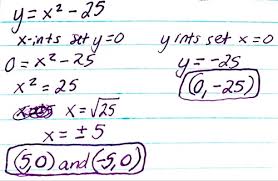 y = x² - 25
x-ints set y=0
0 = x² - 25
x² = 25
x = √25
x = ± 5
(5,0) and (-5,0)
y ints set x = 0
y = -25
(0, -25)